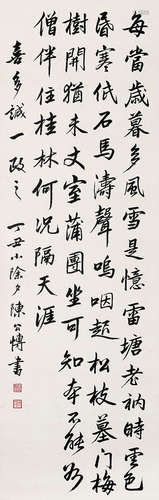 每當歲暮多風雪是憶雷塘老衲時雲色
昏寒低石馬濤聲嗚咽起松枝墓門梅
樹開猶未丈室蒲團坐可知本不能為
僧伴住桂林何況隔天涯
喜多誠一政之 丁丑小除夕陳公博書